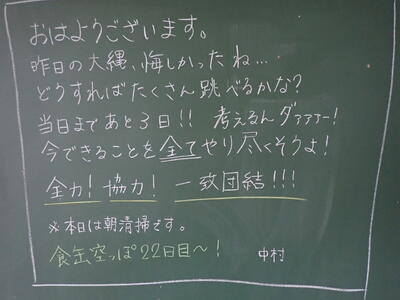 おはようございます。
昨日の大縄、悔しかったね…
どうすればたくさん跳べるかな?
当日まであと3日!! 考えるんダァァァー!
今できることを全てやり尽くそうよ!
全力! 協力! 一致団結!!!
※本日は朝清掃です。
食缶空っぽ22日目〜! 中村